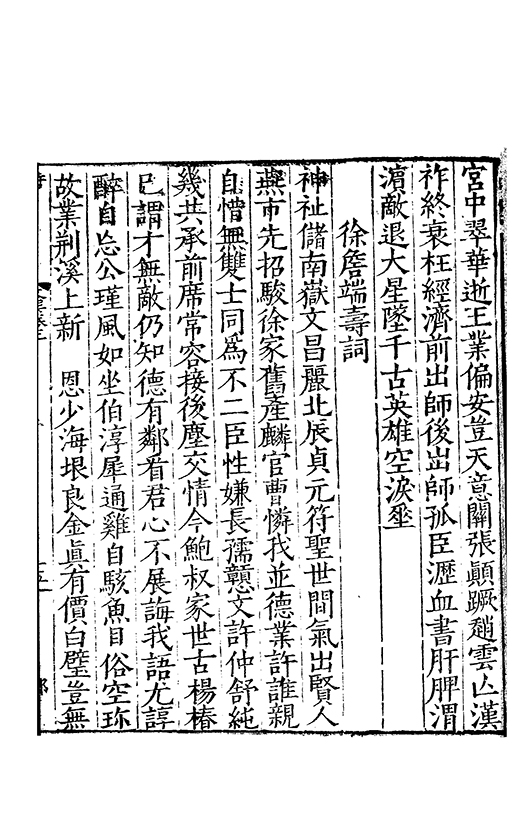 宮中翠華逝王業偏安豈天意關張顚蹶趙雲亾漢
祚終衰枉經濟前出師後出師孤臣瀝血書肝脾渭
濵敵退大星墜千古英雄空淚垂
徐詹端壽詞
神祉儲南嶽文昌麗北辰貞元符聖世間氣出賢人
燕市先招駿徐家舊產麟官曹憐我並德業許誰親
自憎無雙士同爲不二臣性嫌長孺戇文許仲舒純
幾共承前席常容接後塵交情今鮑叔家世古楊椿
已謂才無敵仍知德有鄰看君心不展誨我語尤諄
醉自忘公瑾風如坐伯淳犀通雞自駭魚目俗空珎
故業荆溪上新　恩少海垠良金眞有價白璧豈無